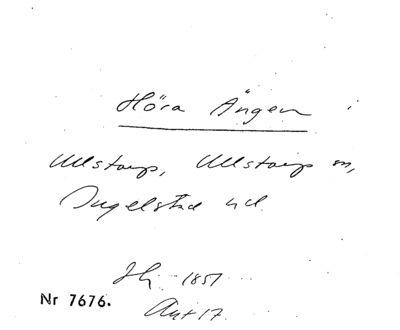 Höra Ängen i
Ullstorp, Ullstorp sn,
Ingelstad hd.
Nr 7676.
1857
Akt 17.